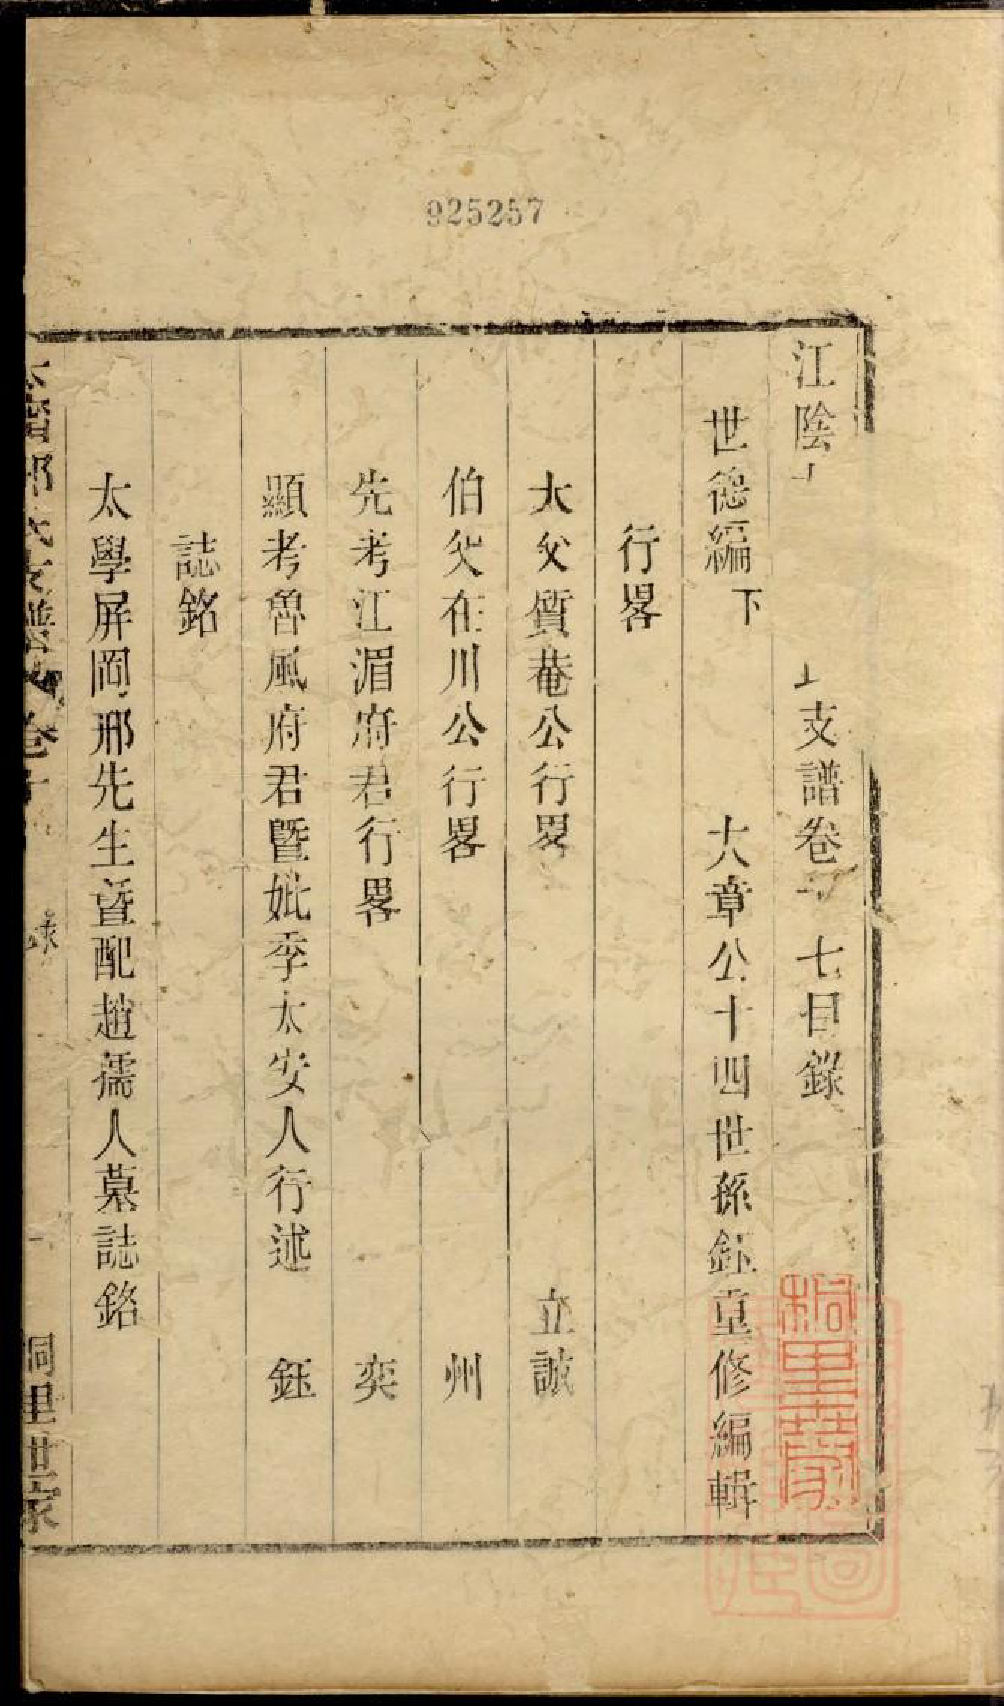 925257
江陰
支譜卷
七目錄
世德編下
大章公十四世孫鈺重修編輯
行畧
大父質菴公行畧 立誠
伯父在川公行畧 州
先考江湄府君行畧 奕
顯考魯風府君曁妣季太安人行述 鈺
誌銘
太學屏岡邢先生曁配趙孺人墓誌銘
桐里世家